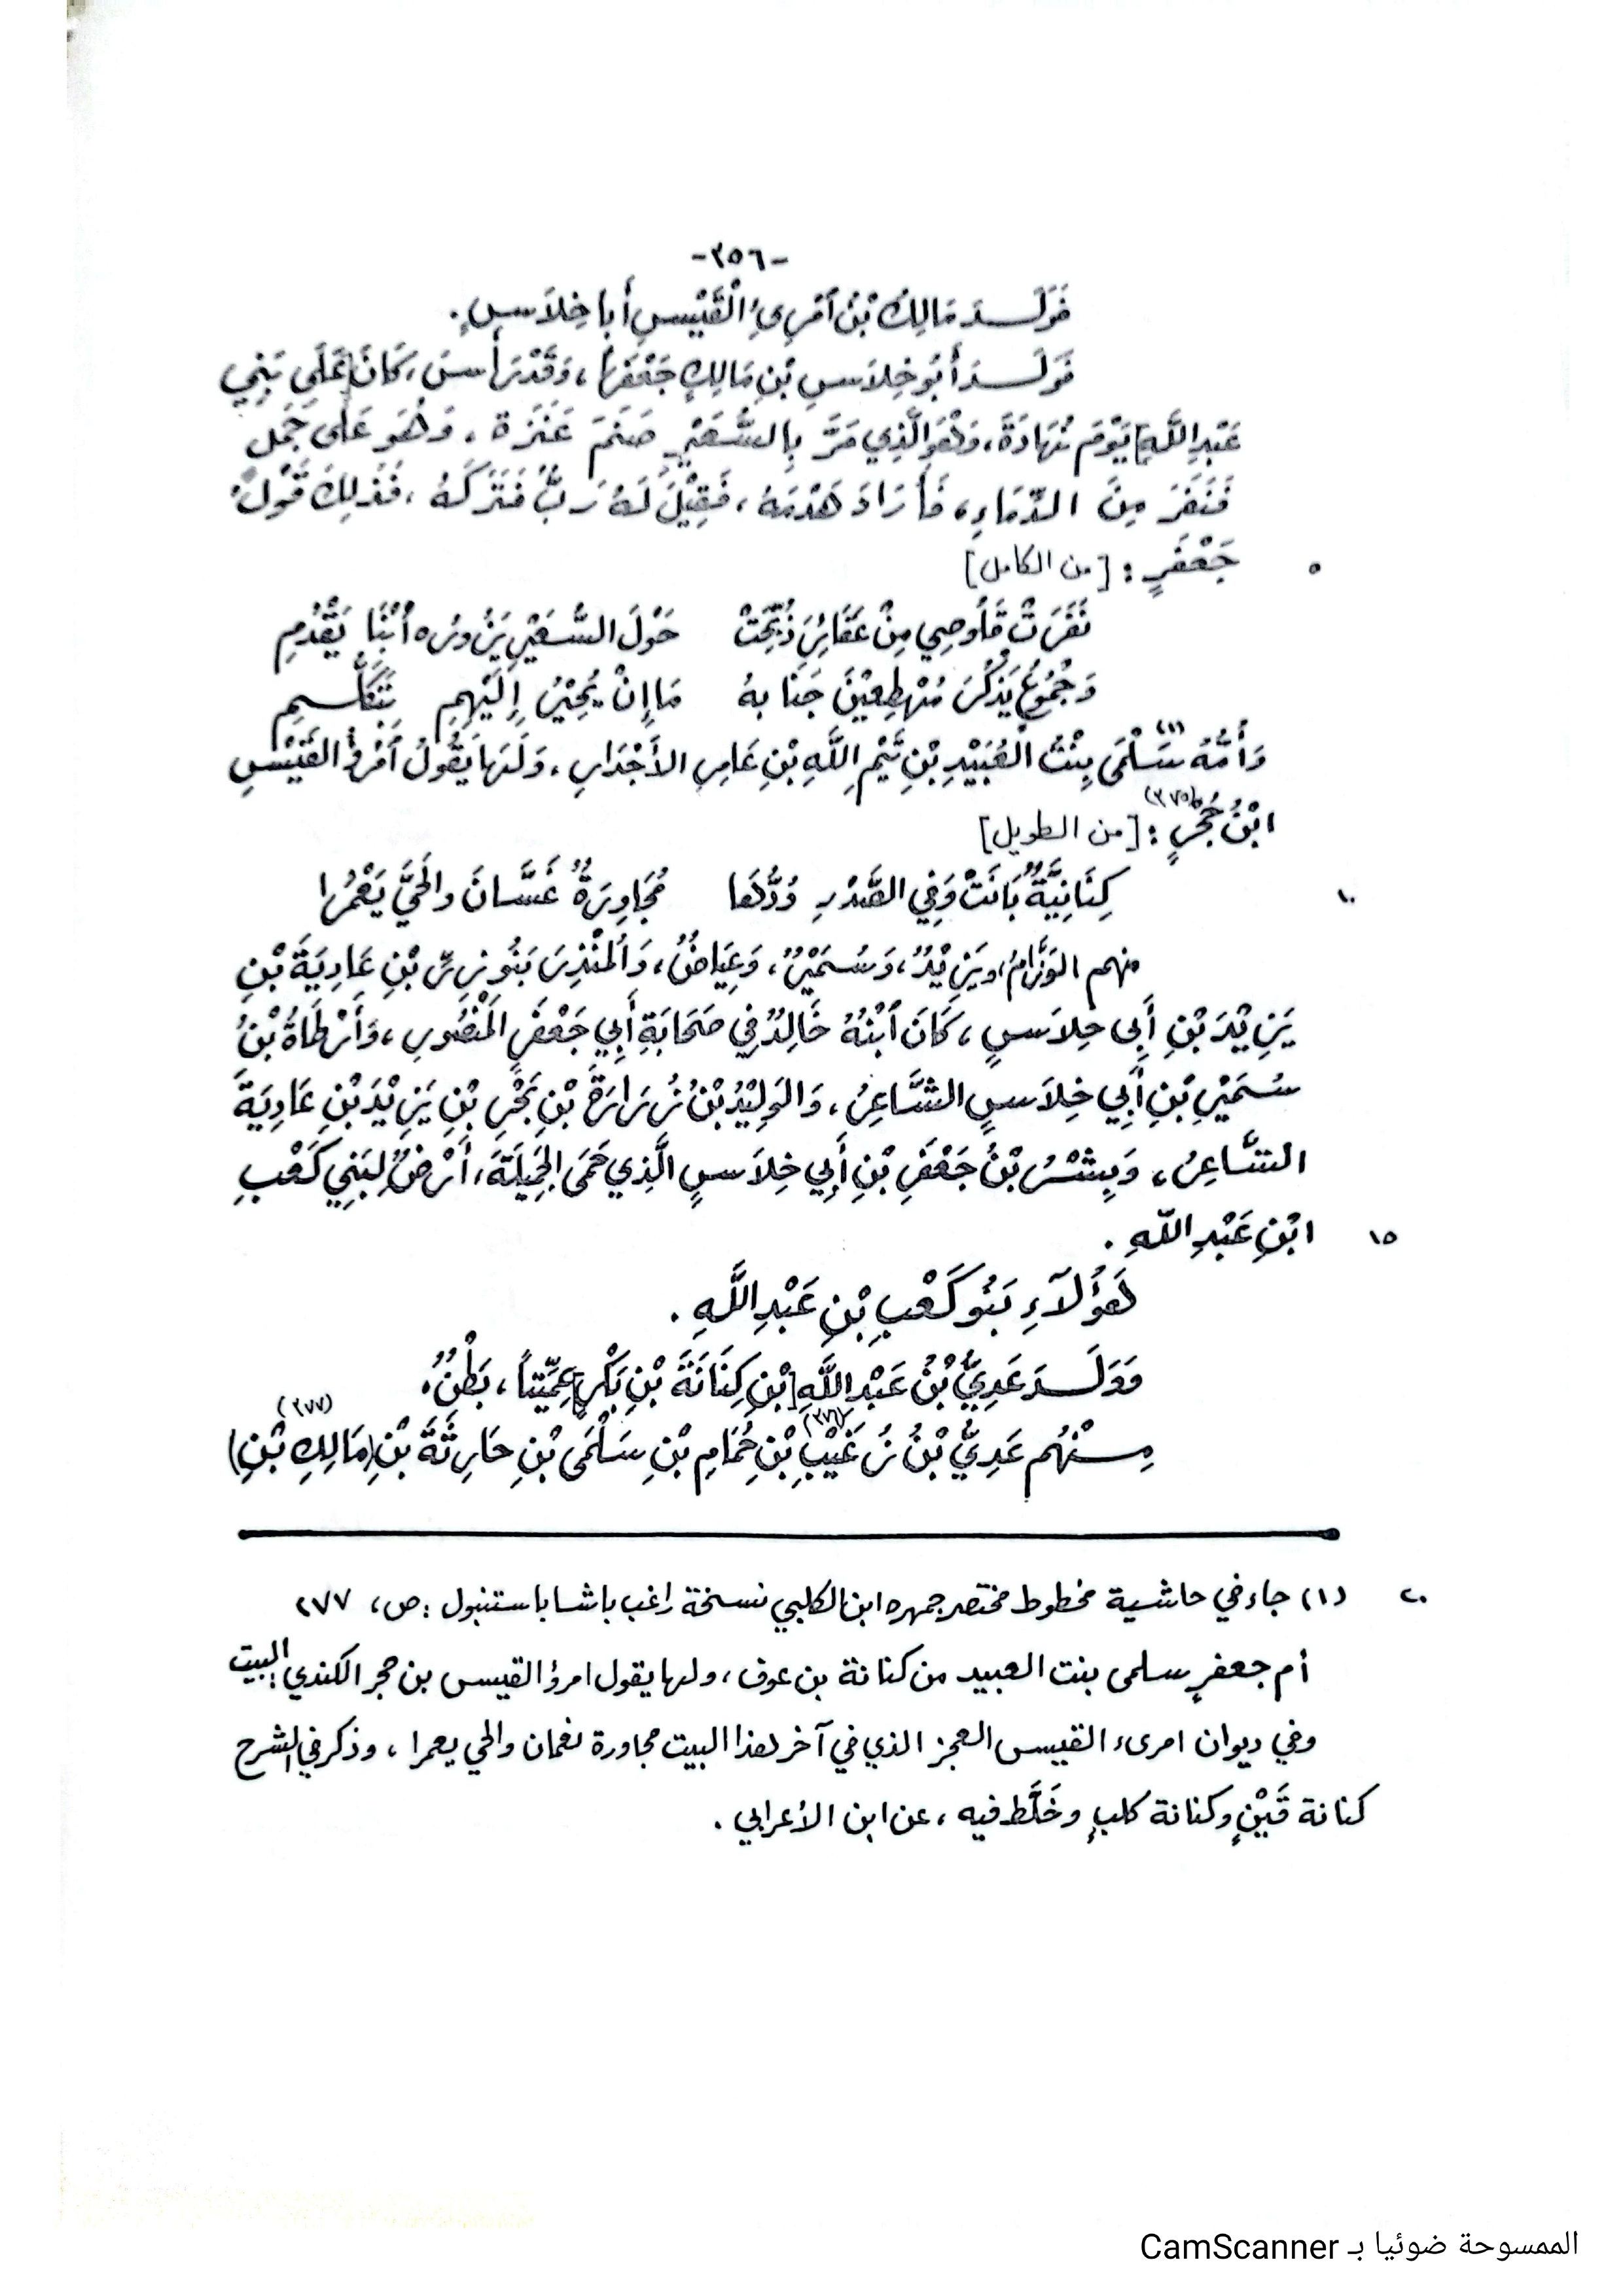 -٣٥٦-
فَوَلَدَ مَالِكُ بْنُ ٱمْرِىءِ الْقَيْسِ أَبا خِلاَسٍ.
فَوَلَدَ أَبُو خِلاَسِ بْنِ مَالِكٍ جَعْفَراً، وَقَدْ رَأَسَ، كَانَ [عَلَى بَنِي
عَبْدِ اللَّهِ] يَوْمَ نُهَادَةَ، وَهُوَ الَّذِي مَرَّ بِالسُّعَيْرِ صَنَمَ عَنَزَةَ، وَهُوَ عَلَى جَمَلٍ
فَنَفَرَ مِنَ الدِّمَاءِ، فَأَرَادَ هَدْمَهُ، فَقِيْلَ لَهُ رَبٌّ فَتَرَكَهُ، فَذَلِكَ قَوْلُ
٥ جَعْفَرٍ: [من الكامل]
نَفَرَتْ قَلُوصِي مِنْ عَقَائِرَ ذُبِّحَتْ حَوْلَ السُّعَيْرِ يَزُورُه ٱبْنَا يَقْدُمِ
وَجُمُوعُ يَذْكُرَ مُهْطِعِيْنَ جَنَابهُ مَا إِنْ يُحِيْرُ إِلَيْهِمِ بِتَكَلُّمِ
وَأُمُّهُ سَلْمَى (١) بِنْتُ الْعُبَيْدِ بْنِ تَيْمِ اللَّهِ بْنِ عَامِرِ الأَجْدَارِ، وَلَهَا يَقُولُ ٱمْرُؤُ القَيْسِ
ابْنُ حُجْرٍ (٢٧٥): [من الطويل]
١٠ كِنَانِيَّةٌ بَانَتْ وَفِي الصَّدْرِ وُدُّهَا مُجَاوِرَةٌ غَسَّانَ والْحَيَّ يَعْمُرا
منهم الوَزَّامُ، ويَزِيْدُ، وَسُمَيْرٌ، وَعِيَاضٌ، وَالْمُنْذِرَ بَنُو زِرِّ بْنِ عَادِيَةَ بْنِ
يَزِيْدَ بْنِ أَبِي خِلاَسٍ، كَانَ ٱبْنُهُ خَالِدٌ فِي صَحَابَةِ أَبِي جَعْفَرٍ الْمَنْصُورِ، وَأَرْطَاةُ بْنُ
سُمَيْرِ بْنِ أَبِي خِلاَسٍ الشَّاعِرُ، وَالوَلِيْدُ بْنُ زُرَارَةَ بْنِ بَحْرِ بْنِ يَزِيْدَ بْنِ عَادِيَةَ
الشَّاعِرُ، وَبِشْرُ بْنُ جَعْفَرِ بْنِ أَبِي خِلاَسٍ الَّذِي حَمَى الجَمِيْلَةَ، أَرْضٌ لِبَنِي كَعْبِ
١٥ ابْنِ عَبْدِ اللَّهِ.
هَؤُلآءِ بَنُو كَعْبِ بْنِ عَبْدِ اللَّهِ.
وَوَلَدَ عَدِيُّ بْنُ عَبْدِ اللَّهِ [بْنِ كِنَانَةَ بْنِ بَكْرٍ] عِمِّيْتاً، بَطْنٌ،
مِنْهُم عَدِيُّ بْنُ زُغَيْبِ (٢٧٦) بْنِ حُمَامِ بْنِ سَلْمَى بْنِ حَارِثَةَ بْنِ (مَالِكِ بْنِ) (٢٧٧)
٢٠ (١) جاء في حاشية مخطوط مختصر جمهرة ابن الكلبي نسخة راغب باشا باستنبول: ص، ٢٧٧
أم جعفرٍ سلمى بنت العبيد من كنانة بن عوف، ولها يقول امرؤ القيس بن حجر الكندي: البيت
وفي ديوان امرىء القيس العجز الذي في آخر هذا البيت مجاورة نعمان والحي يعمرا، وذكر في الشرح
كنانة قَيْنٍ وكنانة كلبٍ وخَلَّط فيه، عن ابن الأعرابي.
الممسوحة ضوئيا بـ CamScanner